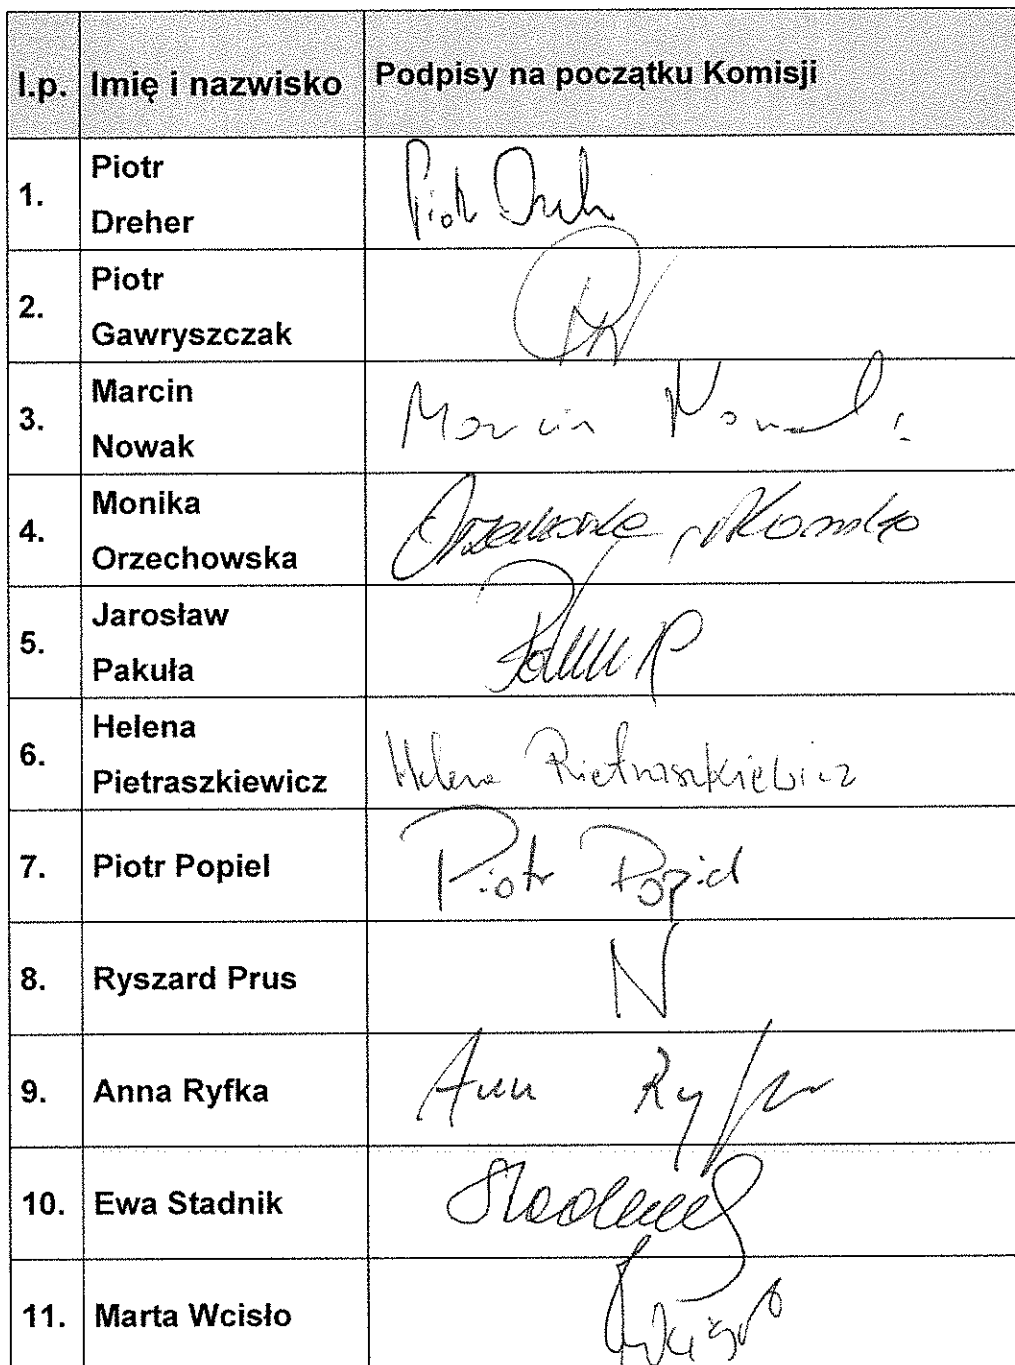 l.p. Imię i nazwisko Podpisy na początku Komisji
1. Piotr Dreher Piotr
2. Piotr Gawryszczak
3. Marcin Nowak Marcin Nowak
4. Monika Orzechowska Orzechowska Monika
5. Jarosław Pakuła
6. Helena Pietraszkiewicz Helena Pietraszkiewicz
7. Piotr Popiel Piotr Popiel
8. Ryszard Prus N
9. Anna Ryfka Anna Ryfka
10. Ewa Stadnik Stadnik
11. Marta Wcisło